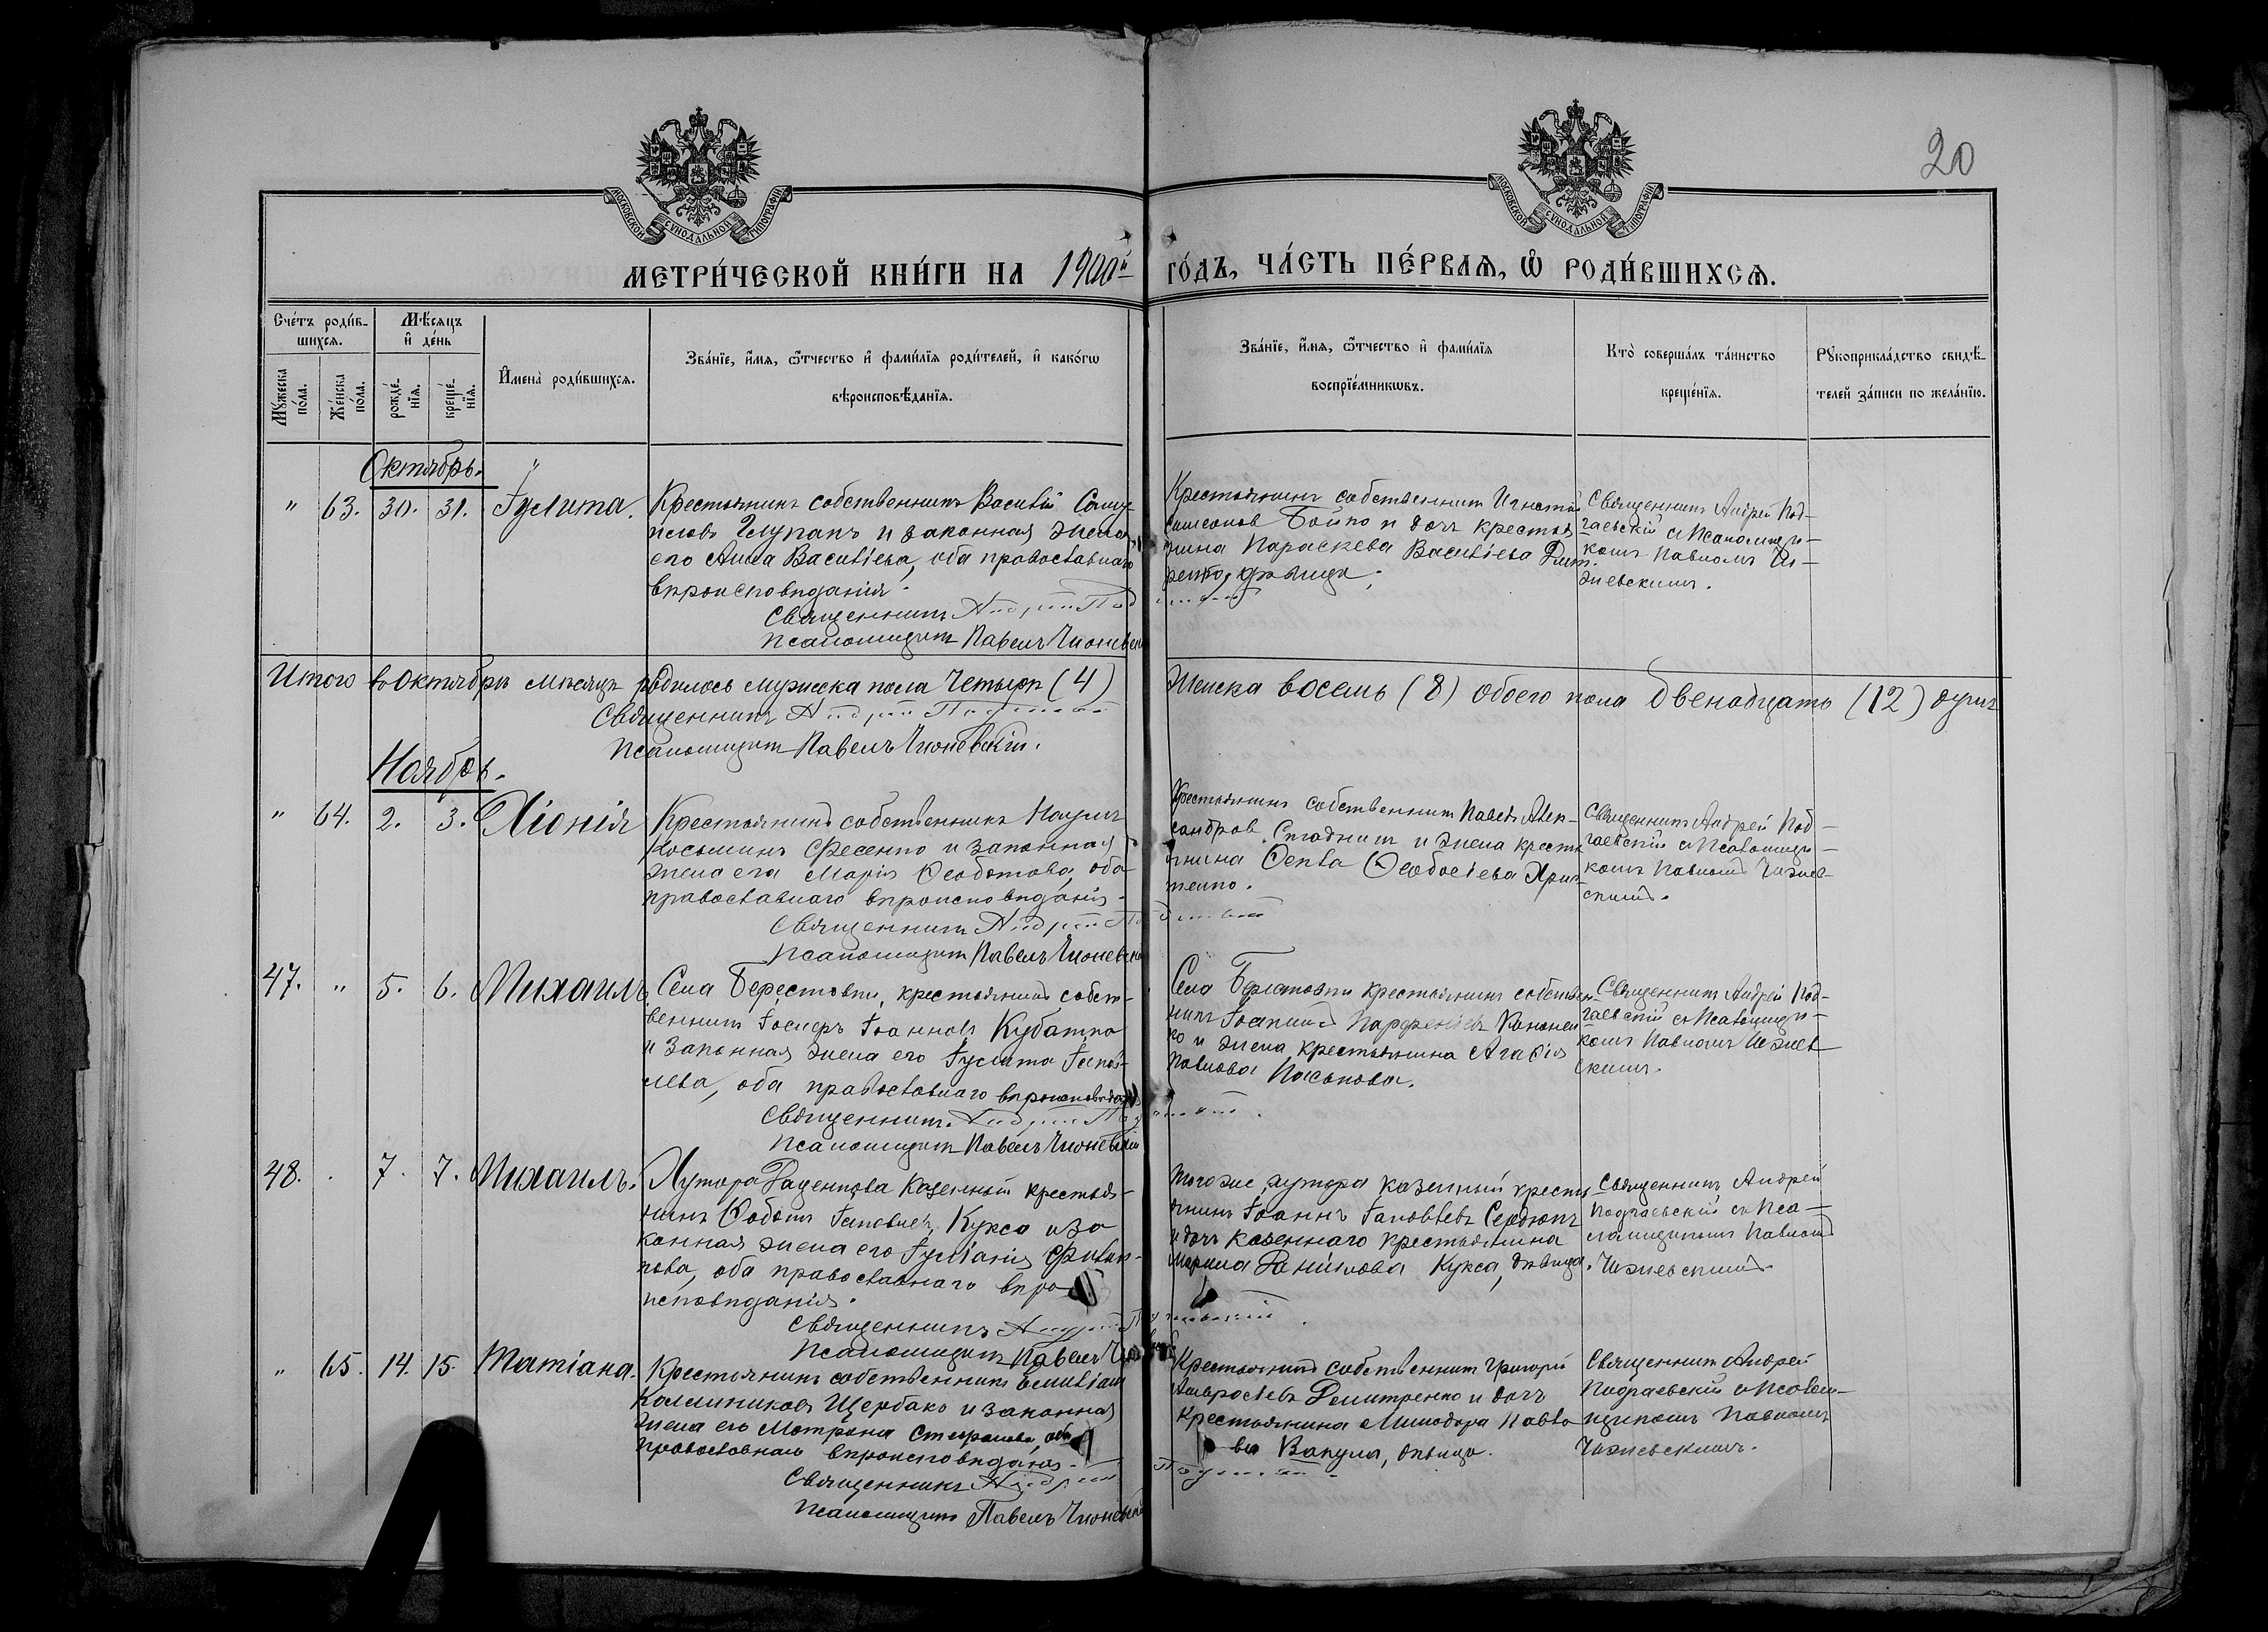 20
МОСКОВСКОЙ СѴНОДАЛЬНОЙ ТИПОГРАФІИ
МОСКОВСКОЙ СѴНОДАЛЬНОЙ ТИПОГРАФІИ
МЕТРИ́ЧЕСКОЙ КНИ́ГИ НА 1900й ГО́ДЪ, ЧА́СТЬ ПЕ́РВАѦ, Ѽ РОДИ́ВШИХСѦ.
Сче́тъ роди́в-
шихсѧ.
Мꙋжеска по́ла.
Же́нска по́ла.
Мѣ́сѧцъ
и҆ де́нь
рожде́-
нїѧ.
креще́-
нїѧ.
И҆мена̀ роди́вшихсѧ.
Зва́нїе, и҆́мѧ, ѻ҆́тчество и҆ фами́лїѧ роди́телей, и҆ како́гѡ
вѣроисповѣ́данїѧ.
Зва́нїе, и҆́мѧ, ѻ҆́тчество и҆ фами́лїѧ
воспрїе́мникѡвъ.
Кто̀ соверша́лъ та́инство
креще́нїѧ.
Рꙋкоприкла́дство свидѣ́-
телей за́писи по жела́нїю.
Октябрь.
" 63. 30. 31. Іулита.
Крестьянинъ собственникъ Василій
и законная жена
его Анна Васильева, оба православнаго
вѣроисповѣданія.
Священникъ Андрей
Псаломщикъ Павелъ
Крестьянинъ собственникъ Игнатій
Самсоновъ Бойко и дочь крестья-
нина Параскева Васильева
дѣвица.
Священникъ Андрей Под-
гаевскій съ Псаломщи-
комъ Павломъ Чи-
жевскимъ.
Итого въ Октябрѣ мѣсяцѣ родилось мужеска пола Четыре (4) Женска восемь (8) обоего пола двенадцать (12) душъ
Священникъ Андрей
Псаломщикъ Павелъ
Ноябрь.
" 64. 2. 3. Хіонія
Крестьянинъ собственникъ Наумъ
Косьминъ Фесенко и законная
жена его Марія Ѳеодотова, оба
православнаго вѣроисповѣданія.
Священникъ Андрей
Псаломщикъ Павелъ
Крестьянинъ собственникъ Павелъ Алек-
сандровъ и жена крестья-
нина Ѳекла Ѳеодосіева

Священникъ Андрей Под-
гаевскій съ Псаломщи-
комъ Павломъ Чижев-
скимъ.
47. " 5. 6. Михаилъ.
Села Берестовки, крестьянинъ собст-
венникъ Іосифъ Іоанновъ Кубатко
и законная жена его Іулита Іаков-
лева, оба православнаго вѣроисповѣданія
Священникъ Андрей
Псаломщикъ Павелъ
Села Берестовки крестьянинъ собствен-
никъ Парфеніевъ Кононен-
ко и жена крестьянина Агафія
Павлова Паськова.
Священникъ Андрей Под-
гаевскій съ Псаломщи-
комъ Павломъ Чижев-
скимъ.
48. . 7. 7. Михаилъ.
Хутора Даценкова казенный крестья-
нинъ Ѳодотъ Кукса и за-
конная жена его Іуліанія Филип-
пова, оба православнаго вѣро-
исповѣданія.
Священникъ Андрей
Псаломщикъ Павелъ
Того же хутора казенный кресть-
янинъ Іоаннъ Іаковлевъ Сердюкъ
и дочь казеннаго крестьянина
Даніилова Кукса, дѣвица.
Священникъ Андрей
Подгаевскій съ Пса-
ломщикомъ Павломъ
Чижевскимъ.
" 65. 14. 15. Татіана.
Крестьянинъ собственникъ Емиліанъ
Каллиниковъ Щербако и законная
жена его Матрона Стефанова, оба
православнаго вѣроисповѣданія.
Священникъ Андрей
Псаломщикъ Павелъ
Крестьянинъ собственникъ Григорій
Амвросіевъ Димитренко и дочь
крестьянина Павло-
ва Вакула, дѣвица.
Священникъ Андрей
Подгаевскій съ Псалом-
щикомъ Павломъ
Чижевскимъ.